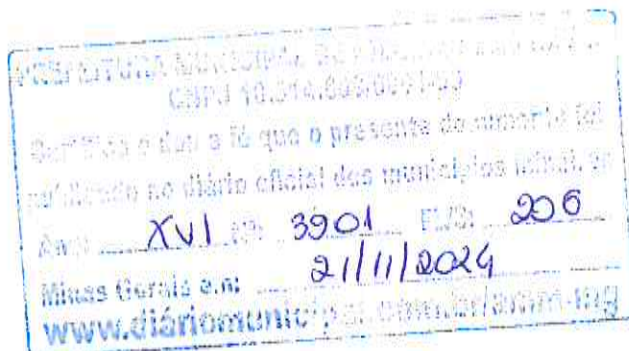 PREFEITURA MUNICIPAL
CNPJ
Certifico e dou a fé que o presente documento foi
publicado no diário oficial dos municípios
Ano: XVI Nº: 3901 FLS: 206
Minas Gerais em: 21/11/2024
www.diáriomunicipal.com.br/amm-mg